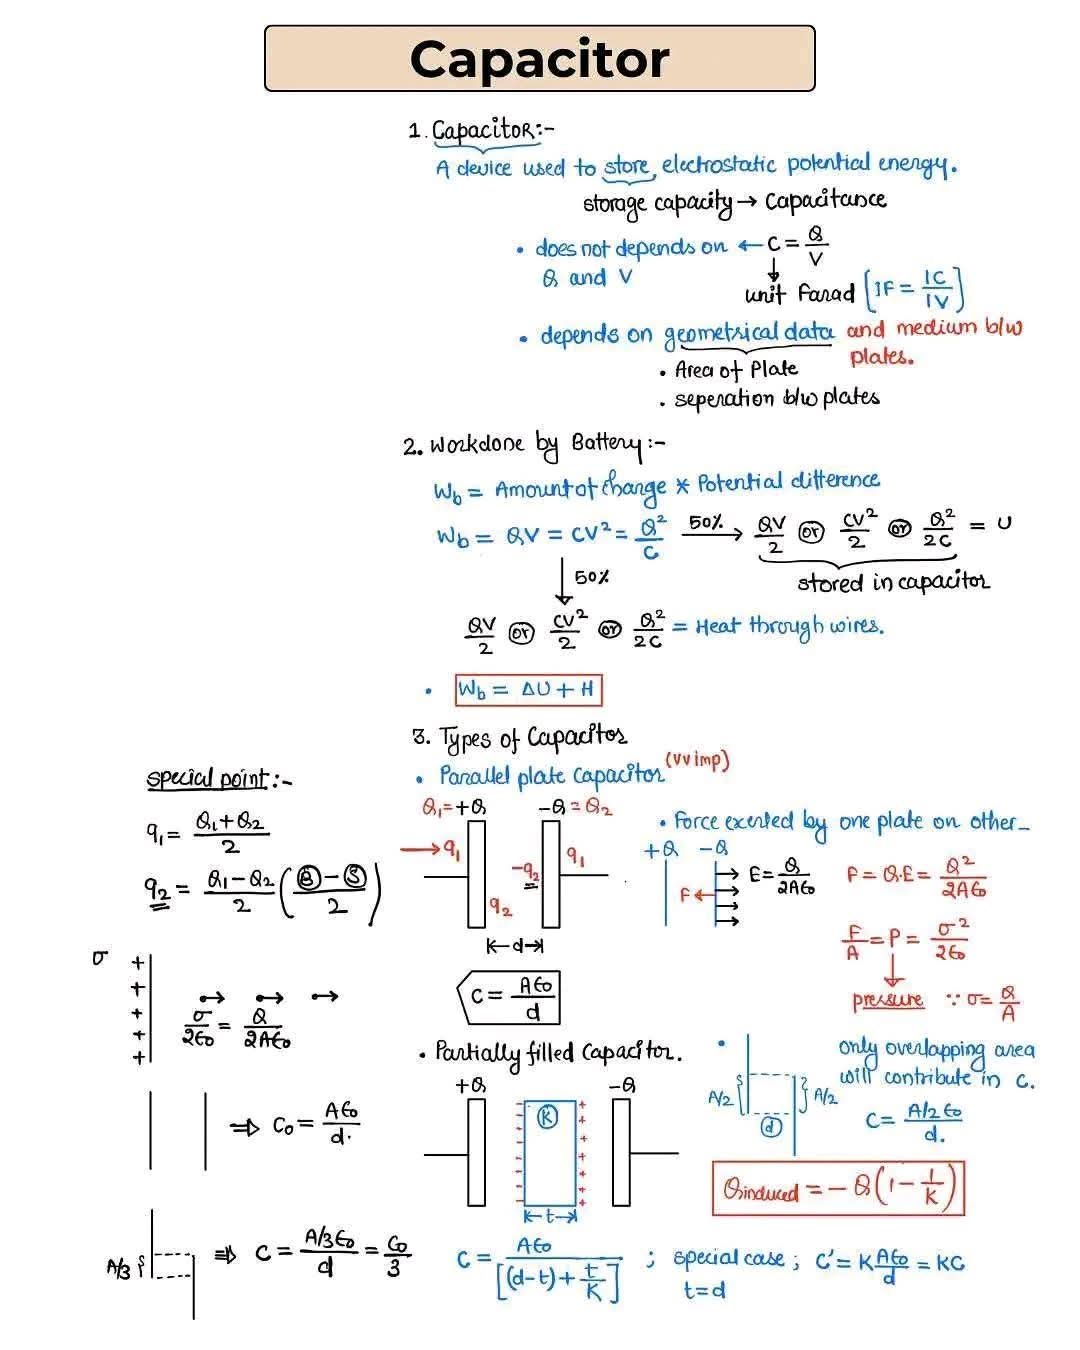 Capacitor
1. Capacitor:-
A device used to store, electrostatic potential energy.
storage capacity → Capacitance
• does not depends on ← C = Q/V
Q and V
unit Farad [1F = 1C/1V]
• depends on geometrical data and medium b/w
plates.
• Area of Plate
• seperation b/w plates
2. Workdone by Battery:-
Wb = Amount of charge * Potential difference
Wb = QV = CV² = Q²/C 50% → QV/2 or CV²/2 or Q²/2C = U
stored in capacitor
↓ 50%
QV/2 or CV²/2 or Q²/2C = Heat through wires.
• Wb = ΔU + H
3. Types of Capacitor
• Parallel plate Capacitor (vv imp)
Q₁ = +Q -Q = Q₂
→ q₁ -q₂ q₁
q₂
←d→
C = A∈₀/d
special point:-
q₁ = Q₁+Q₂/2
q₂ = Q₁-Q₂/2 (S - S/2)
σ
+
+
+
+
+
σ/2∈₀ = Q/2A∈₀
⇒ C₀ = A∈₀/d.
A/3
⇒ C = A/3∈₀/d = C₀/3
• Force exerted by one plate on other_
+Q -Q
F E = Q/2A∈₀ F = Q.E = Q²/2A∈₀
F/A = P = σ²/2∈₀
pressure ∵ σ = Q/A
• Partially filled Capacitor.
+Q -Q
K
←t→
C = A∈₀/[(d-t) + t/K] ; special case ; C' = K A∈₀/d = KC
t = d
• only overlapping area
will contribute in C.
A/2 A/2
d
C = A/2 ∈₀/d.
Qinduced = - Q(1 - 1/K)